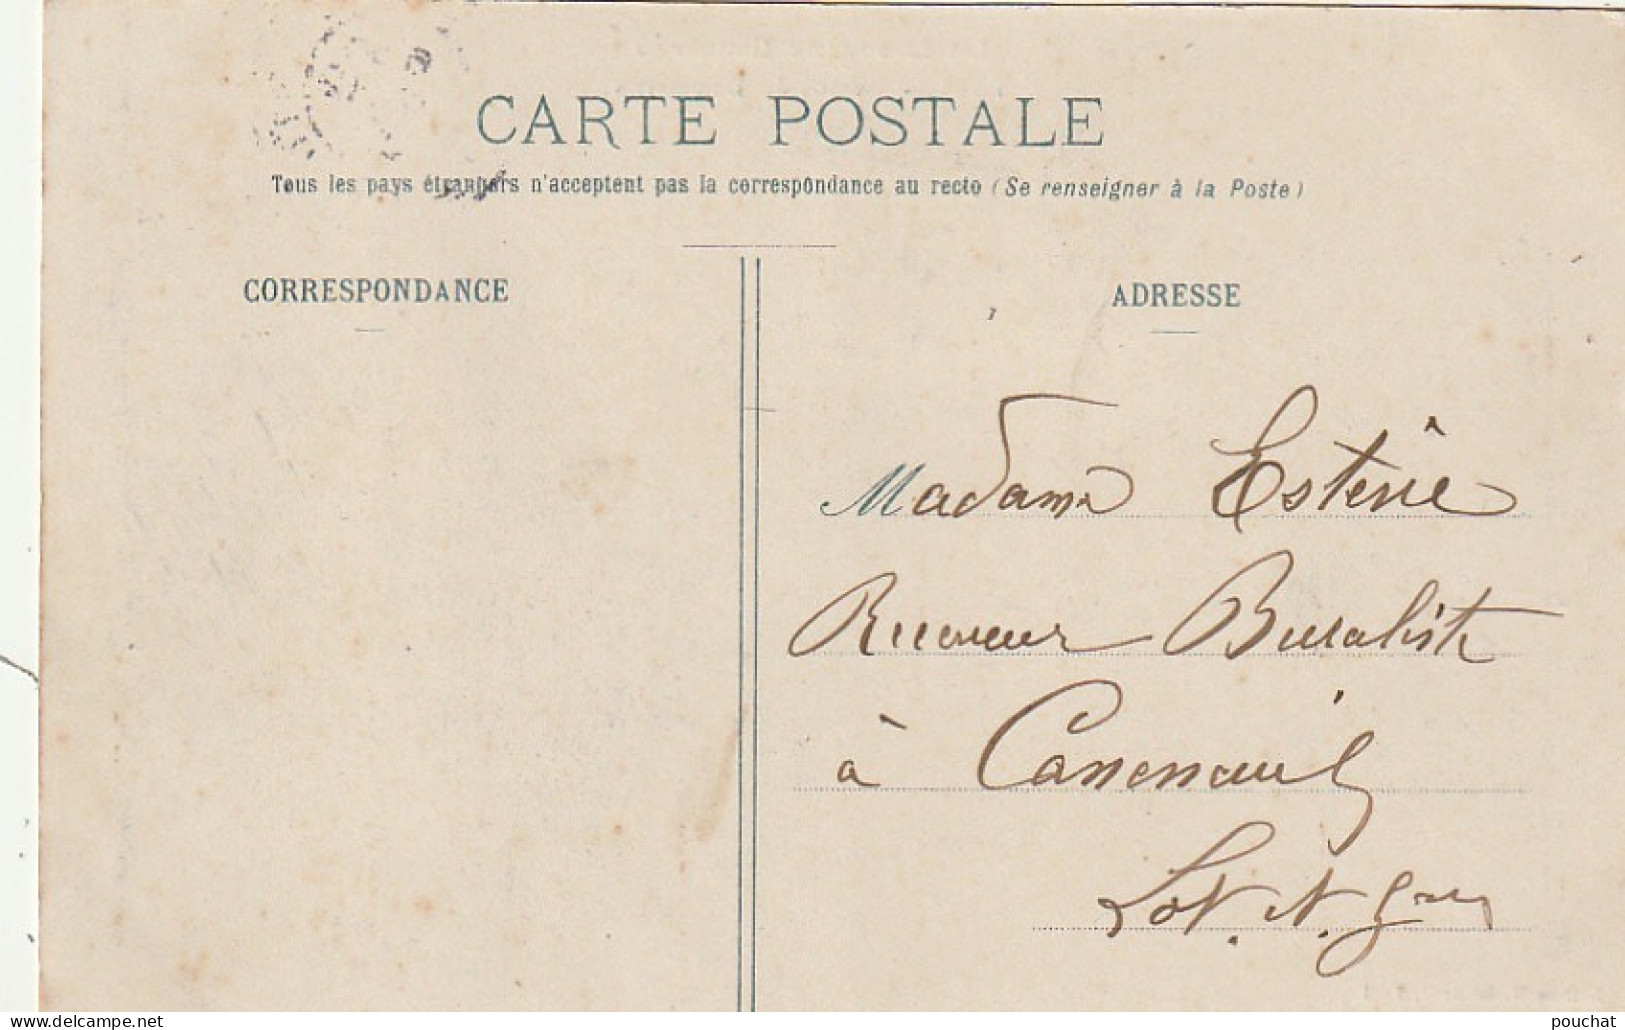 CARTE POSTALE
Tous les pays étrangers n'acceptent pas la correspondance au recto (Se renseigner à la Poste)
CORRESPONDANCE
ADRESSE
Madame Estève
Receveur Buraliste
à Casseneuil
Lot. et. Gne
www.delcampe.net
pouchat